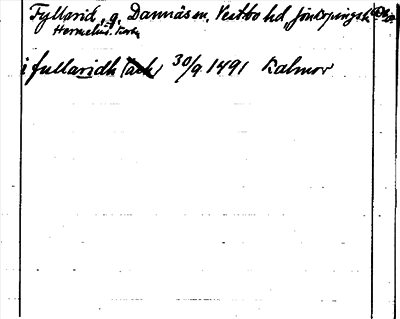 Fyllarid, g. Dannäs sn, Västbo hd, Jönköpings l.
Hermelins karta
i fullaridh 30/9 1491 Kalmar